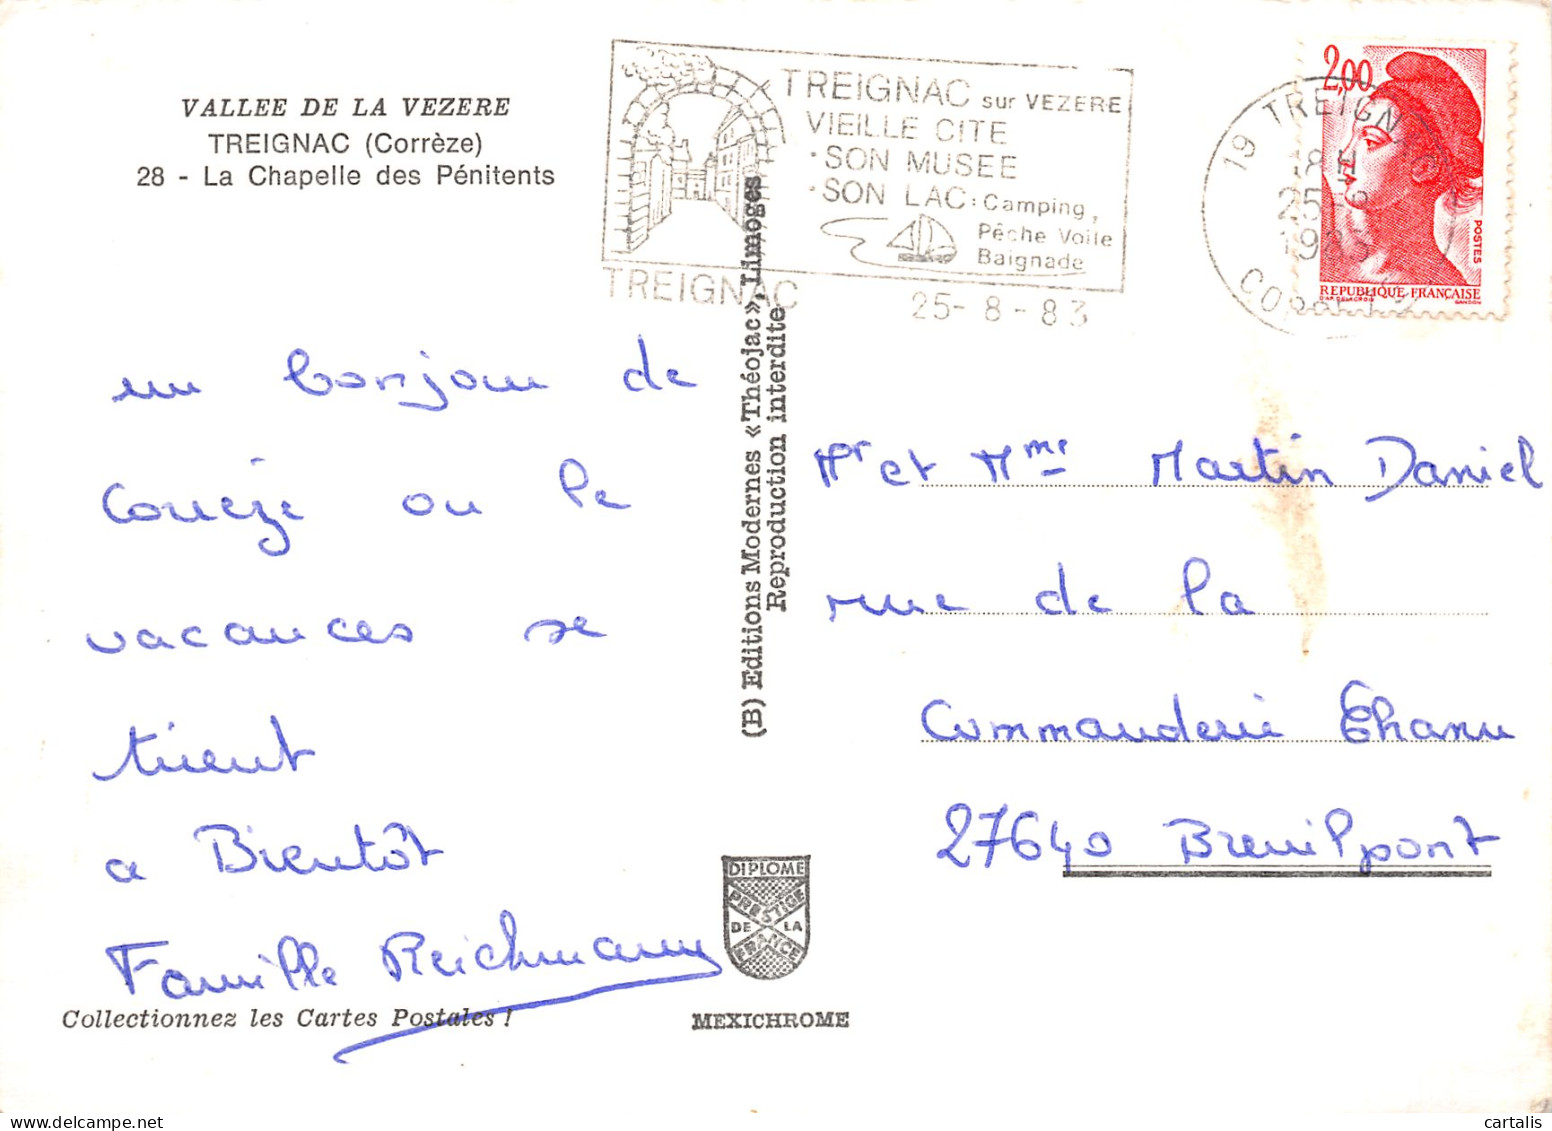 VALLEE DE LA VEZERE
TREIGNAC (Corrèze)
28 - La Chapelle des Pénitents
TREIGNAC sur VEZERE
VIEILLE CITE
·SON MUSEE
·SON LAC: Camping,
Pêche Voile
Baignade
TREIGNAC
25-8-83
19 TREIGNAC
18H
25-8
1983
CORREZE
2,00
POSTES
REPUBLIQUE FRANÇAISE
D'AP. DELACROIX GANDON
un bonjour de
Corrèze ou le
vacances se
tirent
a Bientôt
Famille Reichmann
(B) Editions Modernes « Théojac », Limoges
Reproduction interdite
Mr et Mme Martin Daniel
rue de la
Commanderie Chanu
27640 Breuilpont
DIPLOME
PRESTIGE
DE LA
FRANCE
Collectionnez les Cartes Postales !
MEXICHROME
cartalis